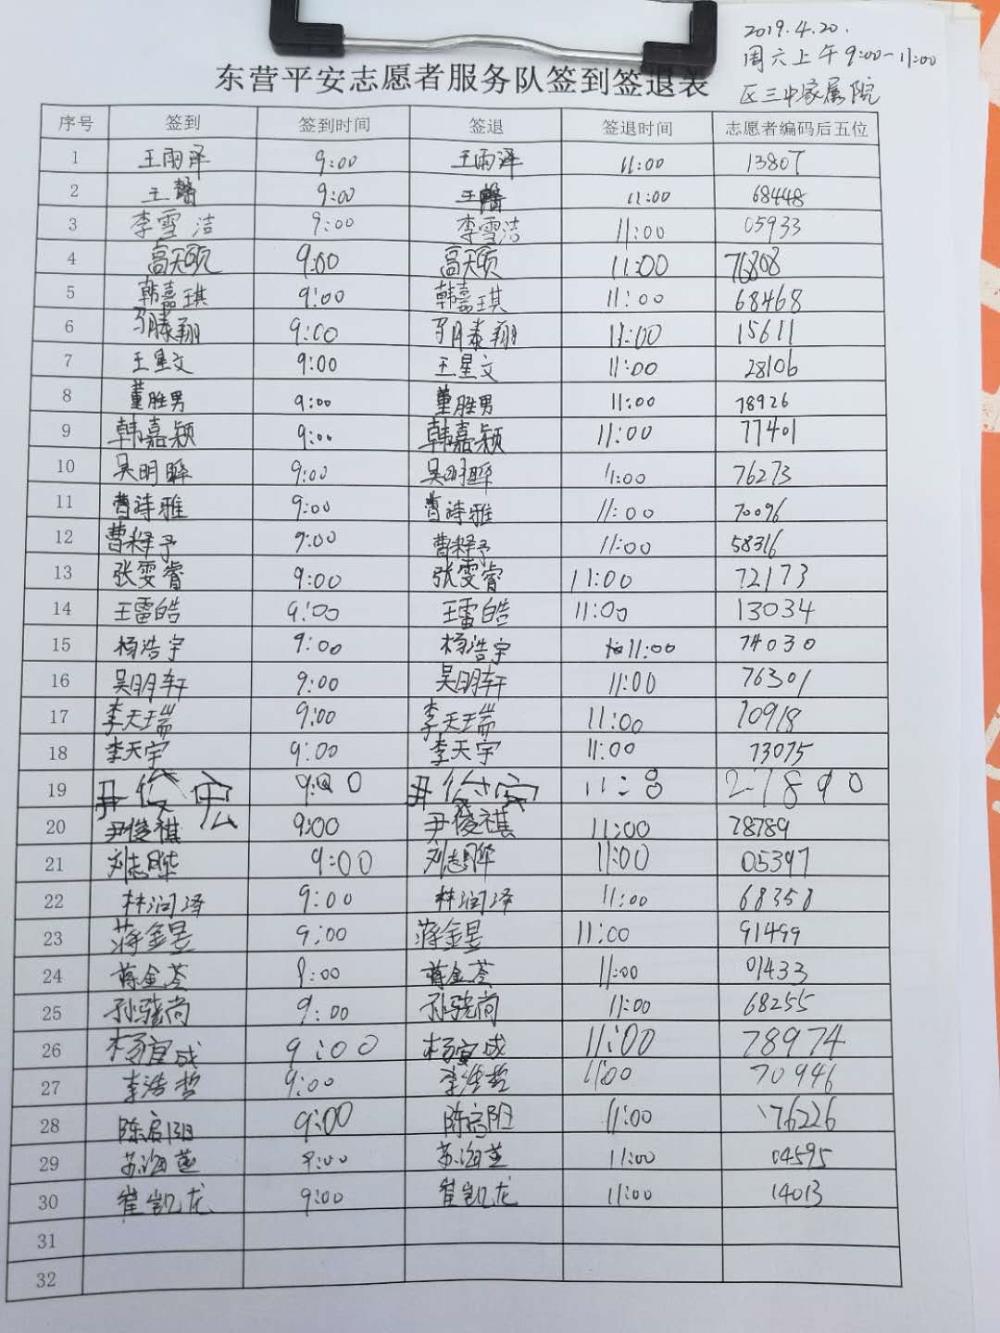 2019.4.20.
周六上午9:00-11:00
区三中家属院
东营平安志愿者服务队签到签退表
序号 签到 签到时间 签退 签退时间 志愿者编码后五位
1 王雨泽 9:00 王雨泽 11:00 13807
2 王馨 9:00 王馨 11:00 68448
3 李雪洁 9:00 李雪洁 11:00 05933
4 高天硕 9:00 高天硕 11:00 76808
5 韩嘉琪 9:00 韩嘉琪 11:00 68468
6 9:00 11:00 15611
7 王星文 9:00 王星文 11:00 28106
8 董胜男 9:00 董胜男 11:00 78926
9 韩嘉颖 9:00 韩嘉颖 11:00 77401
10 吴明晔 9:00 吴明晔 11:00 76273
11 曹诗雅 9:00 曹诗雅 11:00 70096
12 曹释予 9:00 曹释予 11:00 58316
13 张雯睿 9:00 张雯睿 11:00 72173
14 王雷皓 9:00 王雷皓 11:00 13034
15 杨浩宇 9:00 杨浩宇 11:00 74030
16 吴明轩 9:00 吴明轩 11:00 76301
17 李天瑞 9:00 李天瑞 11:00 10918
18 李天宇 9:00 李天宇 11:00 73075
19 9:00 11:00 27890
20 尹俊祺 9:00 尹俊祺 11:00 78789
21 刘志晔 9:00 刘志晔 11:00 05397
22 林润泽 9:00 林润泽 11:00 68358
23 蒋金昱 9:00 蒋金昱 11:00 91499
24 蒋金荟 9:00 蒋金荟 11:00 01433
25 孙骁尚 9:00 孙骁尚 11:00 68255
26 杨宜成 9:00 杨宜成 11:00 78974
27 李浩哲 9:00 李浩哲 11:00 70946
28 陈启阳 9:00 陈启阳 11:00 76226
29 苏海莲 9:00 苏海莲 11:00 04595
30 崔凯龙 9:00 崔凯龙 11:00 14013
31
32